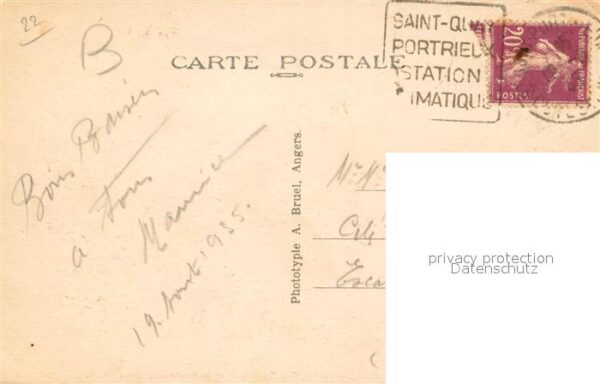 22
B
CARTE POSTALE
SAINT-QU
PORTRIEUX
STATION
IMATIQUE
20c
POSTES
Bons Baisers
à Tous
Maurice
19 Août 1935.
Phototypie A. Bruel, Angers.
Mr
Cité
Esca
privacy protection
Datenschutz